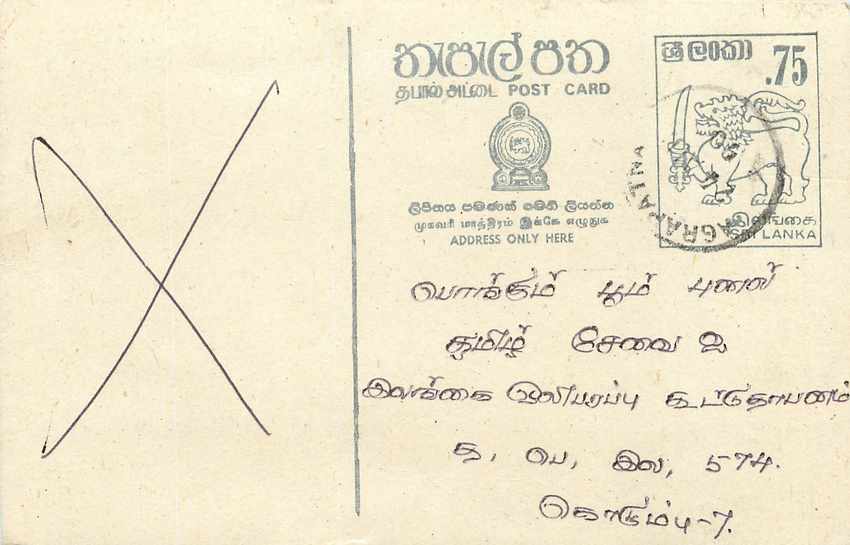 තැපැල් පත
தபால் அட்டை POST CARD
ලිපිනය පමණක් මෙහි ලියන්න
முகவரி மாத்திரம் இங்கே எழுதுக
ADDRESS ONLY HERE
ශ්‍රී ලංකා
.75
இலங்கை
SRI LANKA
AGRAPATNA
பொங்கும் பூம் புனல்
தமிழ் சேவை 2
இலங்கை ஒலிபரப்பு கூட்டுதாபனம்
த. பெ. இல, 574.
கொழும்பு-7.